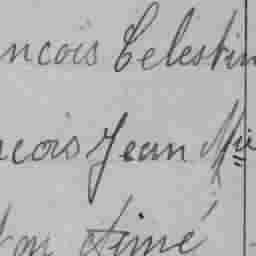 ncois Celestin
cois Jean Mie
on Aimé